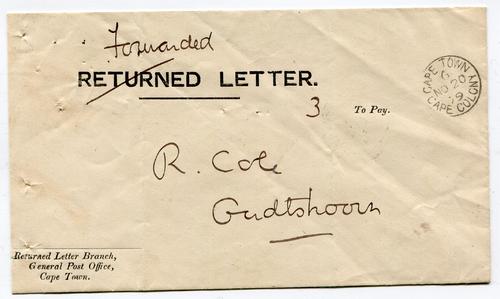 Forwarded
RETURNED LETTER.
CAPE TOWN
G
NO 20
9
CAPE COLONY
3 To Pay.
R. Cole
Oudtshoorn
Returned Letter Branch,
General Post Office,
Cape Town.